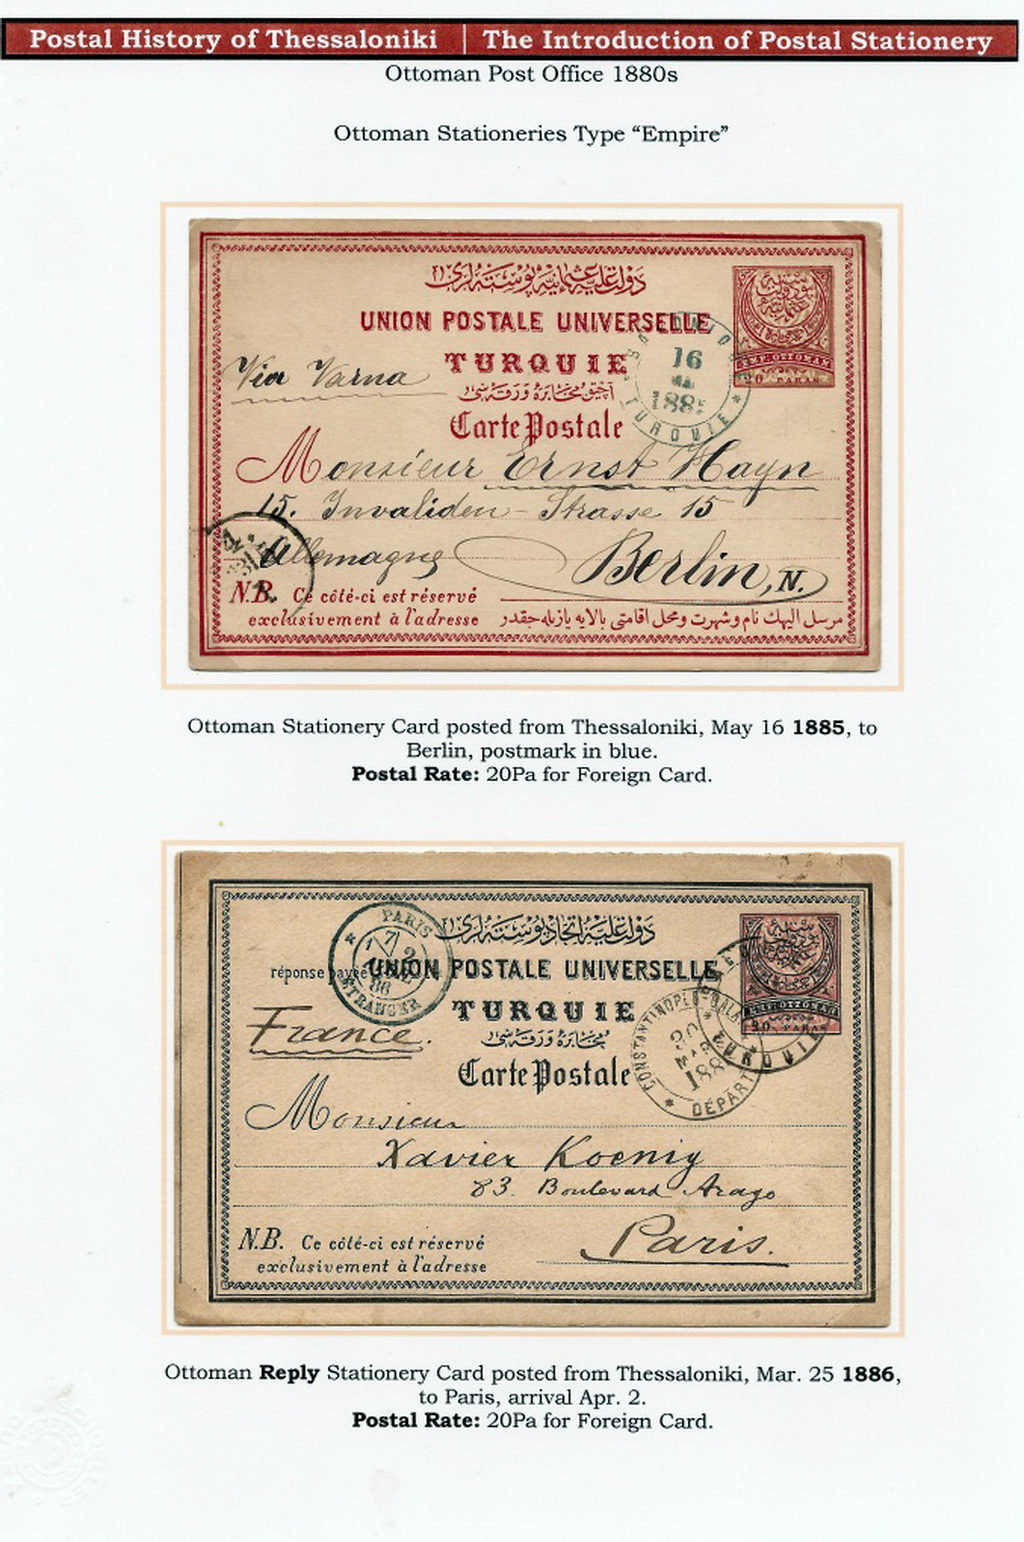 Postal History of Thessaloniki | The Introduction of Postal Stationery
Ottoman Post Office 1880s
Ottoman Stationeries Type “Empire”
دولت علیه عثمانیه پوسته لری
UNION POSTALE UNIVERSELLE
TURQUIE
Via Varna
آچیق مخابره ورقه سی
Carte Postale
EMP: OTTOMAN
20 PARAS
16
MAI
188
TURQUIE
Monsieur Ernst Hayn
15. Invaliden-Strasse 15
Allemagne Berlin, N.
N.B. Ce côté-ci est réservé
exclusivement à l'adresse
مرسل الیهك نام و شهرت و محل اقامتی بالایه یازیله جقدر
Ottoman Stationery Card posted from Thessaloniki, May 16 1885, to
Berlin, postmark in blue.
Postal Rate: 20Pa for Foreign Card.
PARIS
ETRANGER
86
دولت علیه اتحاد پوسته لری
réponse payée UNION POSTALE UNIVERSELLE
TURQUIE
France.
مخابره ورقه سی
Carte Postale
EMP: OTTOMAN
20 PARAS
TURQUIE
CONSTANTINOPLE-GALATA
30
MARS
188
DÉPART
Monsieur
Xavier Koenig
83. Boulevard Arago
Paris.
N.B. Ce côté-ci est réservé
exclusivement à l'adresse
Ottoman Reply Stationery Card posted from Thessaloniki, Mar. 25 1886,
to Paris, arrival Apr. 2.
Postal Rate: 20Pa for Foreign Card.